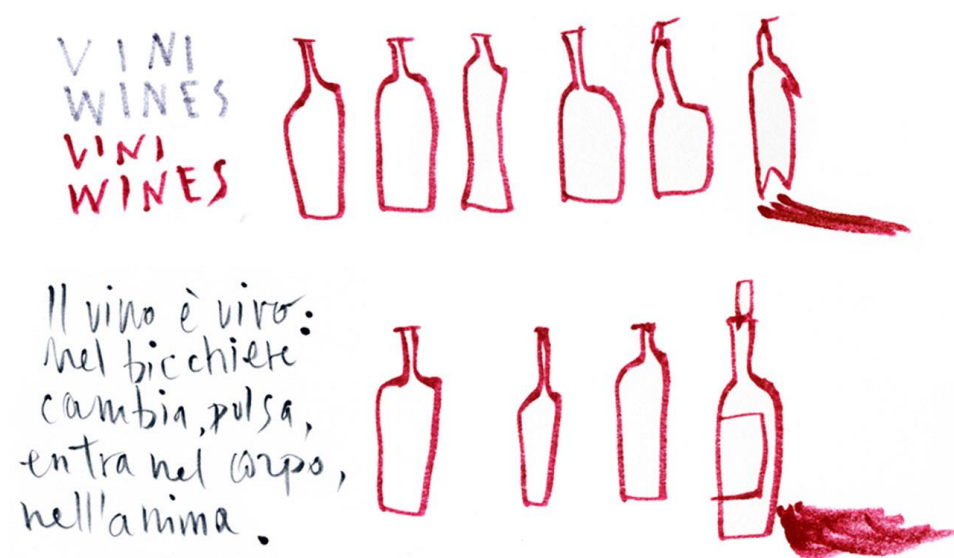 VINI
WINES
VINI
WINES
Il vino è vivo:
nel bicchiere
cambia, pulsa,
entra nel corpo,
nell'anima.